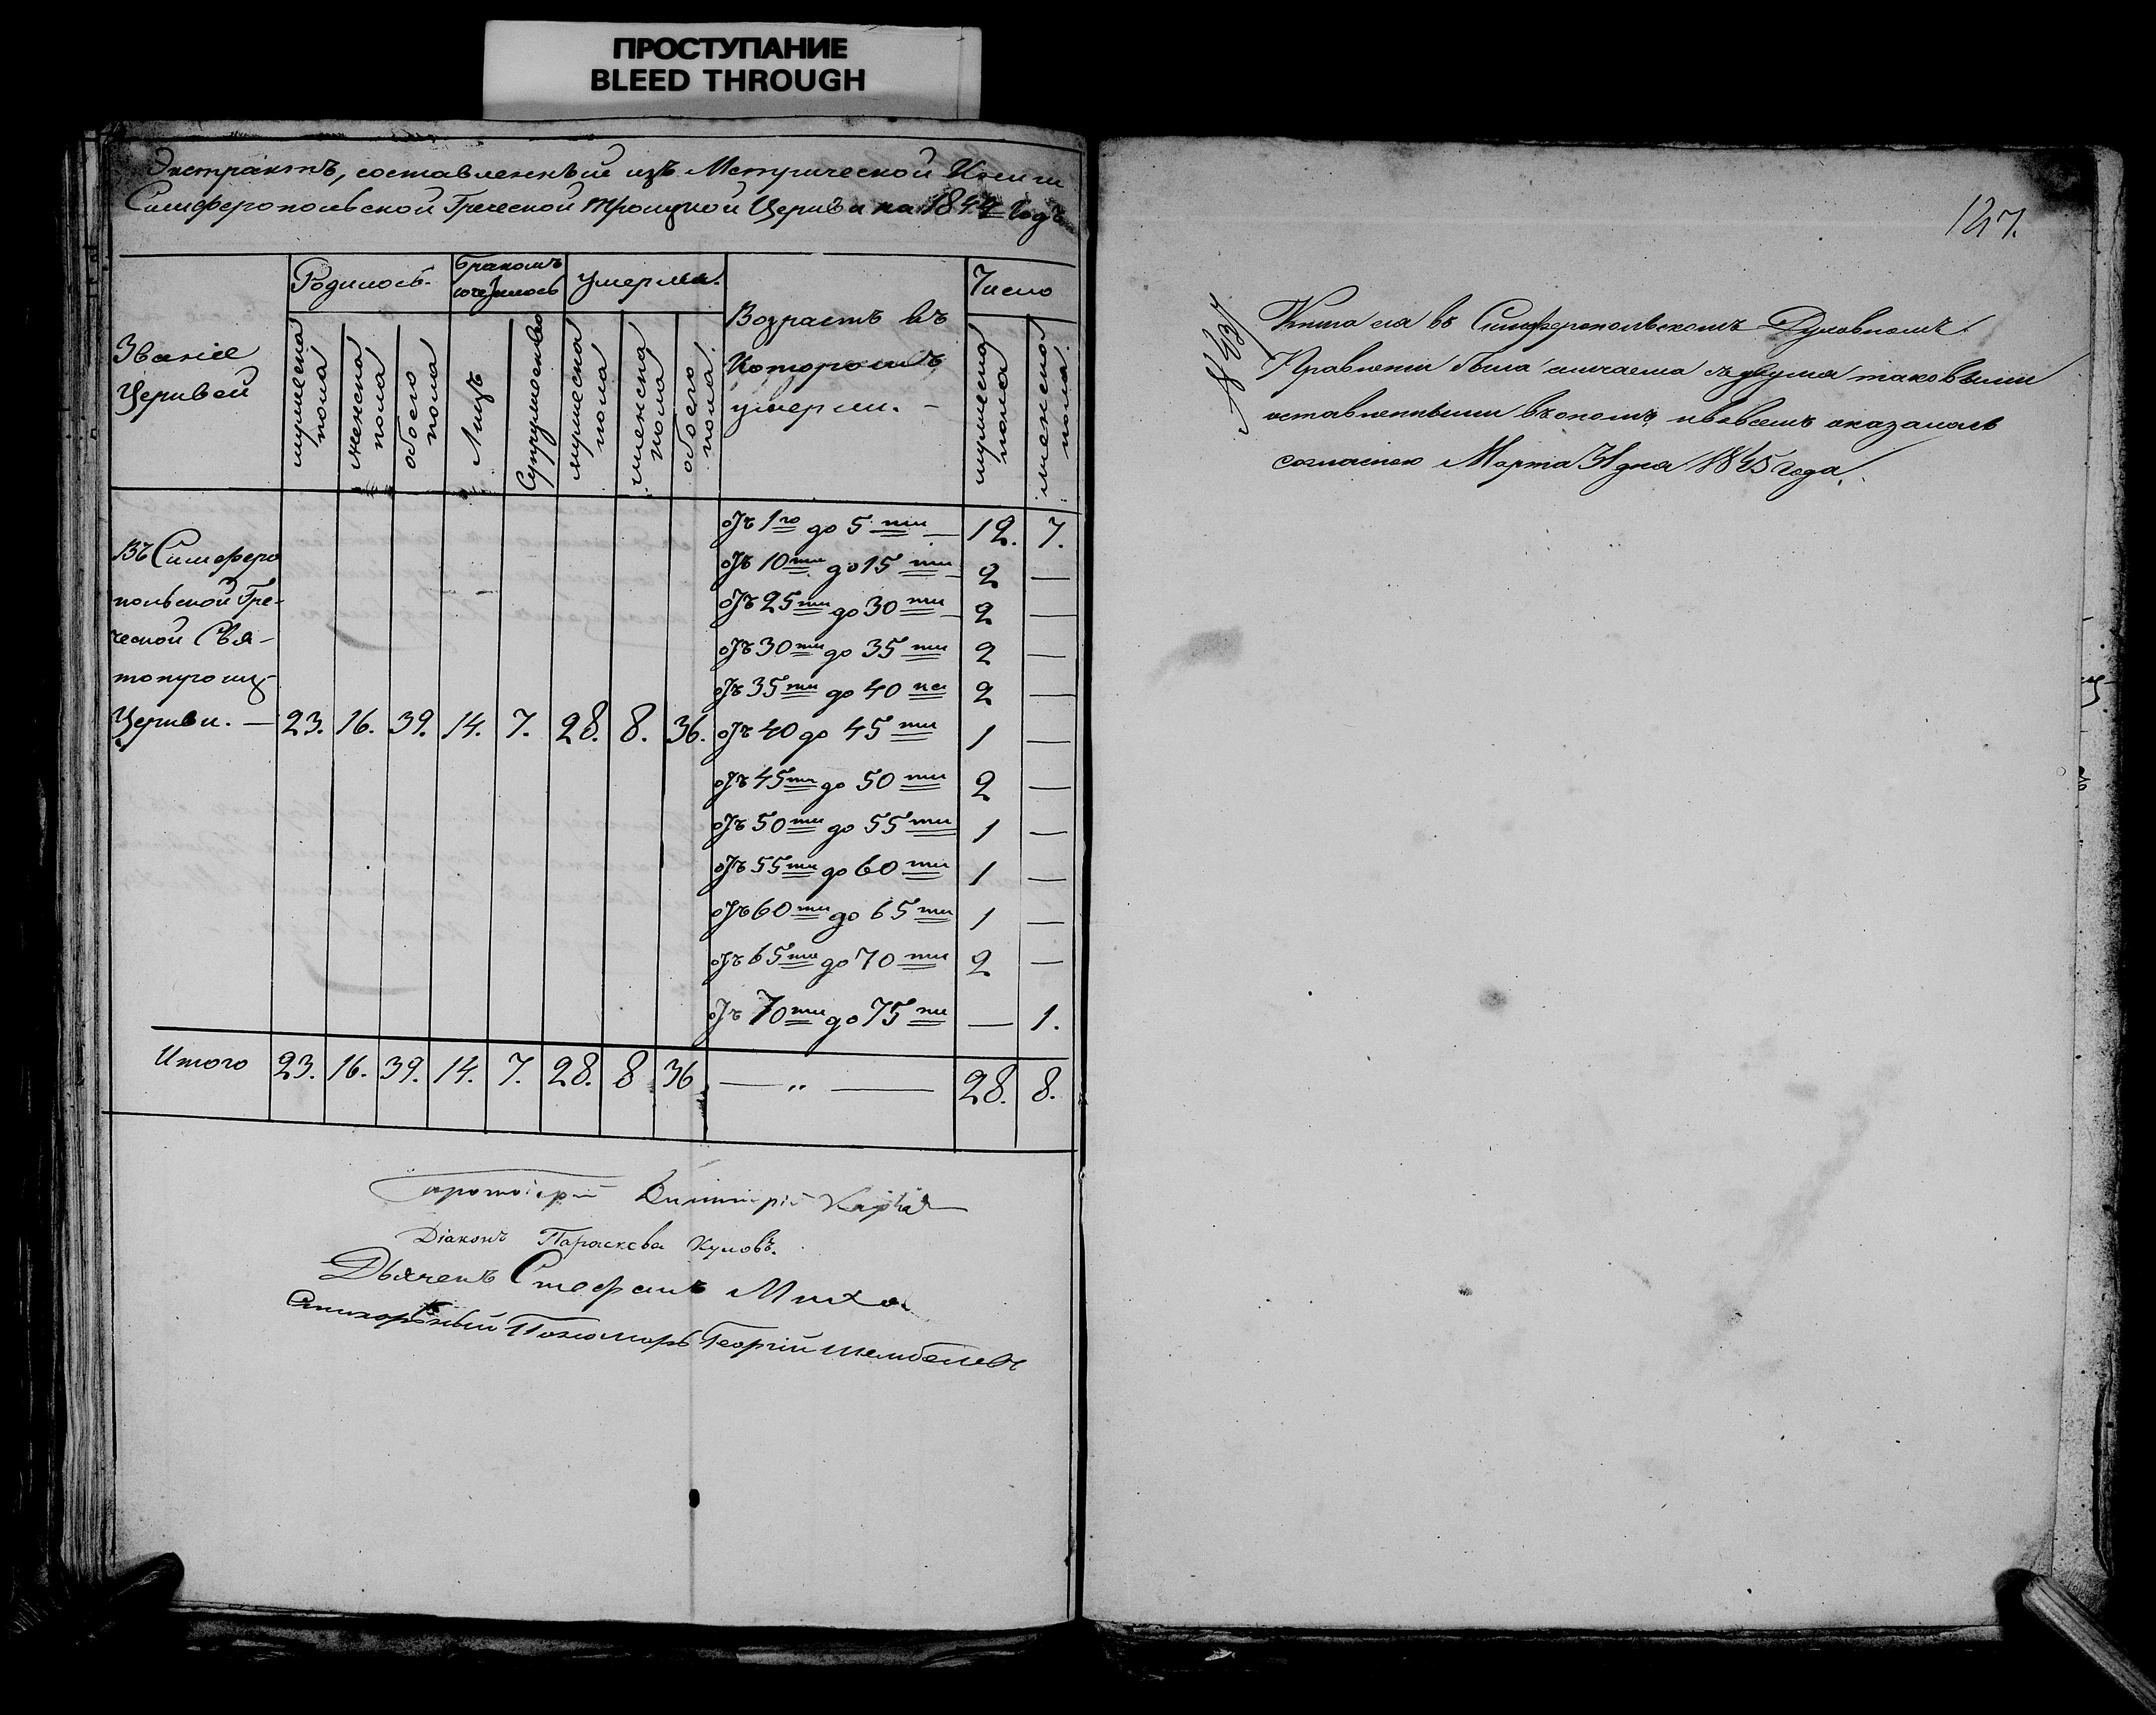 ПРОСТУПАНИЕ
BLEED THROUGH
Экстрактъ, составленный изъ Метрической Книги
Симферопольской Греческой Троицкой Церкви на 1844 Годъ
Званіе Церквей
Родилось.
мужеска пола
женска пола
обоего пола
бракомъ сочеталось
Лицъ
Супружество
умерло.
мужеска пола
женска пола
обоего пола
Возрастъ въ
которомъ
умерли. -
Число
мужеска пола
женска пола
Въ Симферо
польской Гре-
ческой Свя-
Церкви. — 23. 16. 39. 14. 7. 28. 8. 36.
Отъ 1го до 5ти — 12. 7.
Отъ 10ти до 15ти — 2 —
Отъ 25ти до 30ти — 2 —
Отъ 30ти до 35ти 2 —
Отъ 35ти до 40ка 2 —
Отъ 40 до 45ти 1 —
Отъ 45ти до 50ти 2 —
Отъ 50ти до 55ти 1 —
Отъ 55ти до 60ти 1 —
Отъ 60ти до 65ти 1 —
Отъ 65ти до 70ти 2 —
Отъ 70ти до 75ти — 1.
Итого 23. 16. 39. 14. 7. 28. 8 36 — „ — 28. 8.
Протоіерей Димитрій
Діаконъ Параскева
Дьячекъ Стефанъ
Стихарный Пономарь Георгій
127.
Книга сія въ Симферопольскомъ Духовномъ
Правленіи была сличаема съ двумя таковыми
оставленными въ ономъ, и во всемъ оказалась
согласною Марта 31 дня 1845 года.